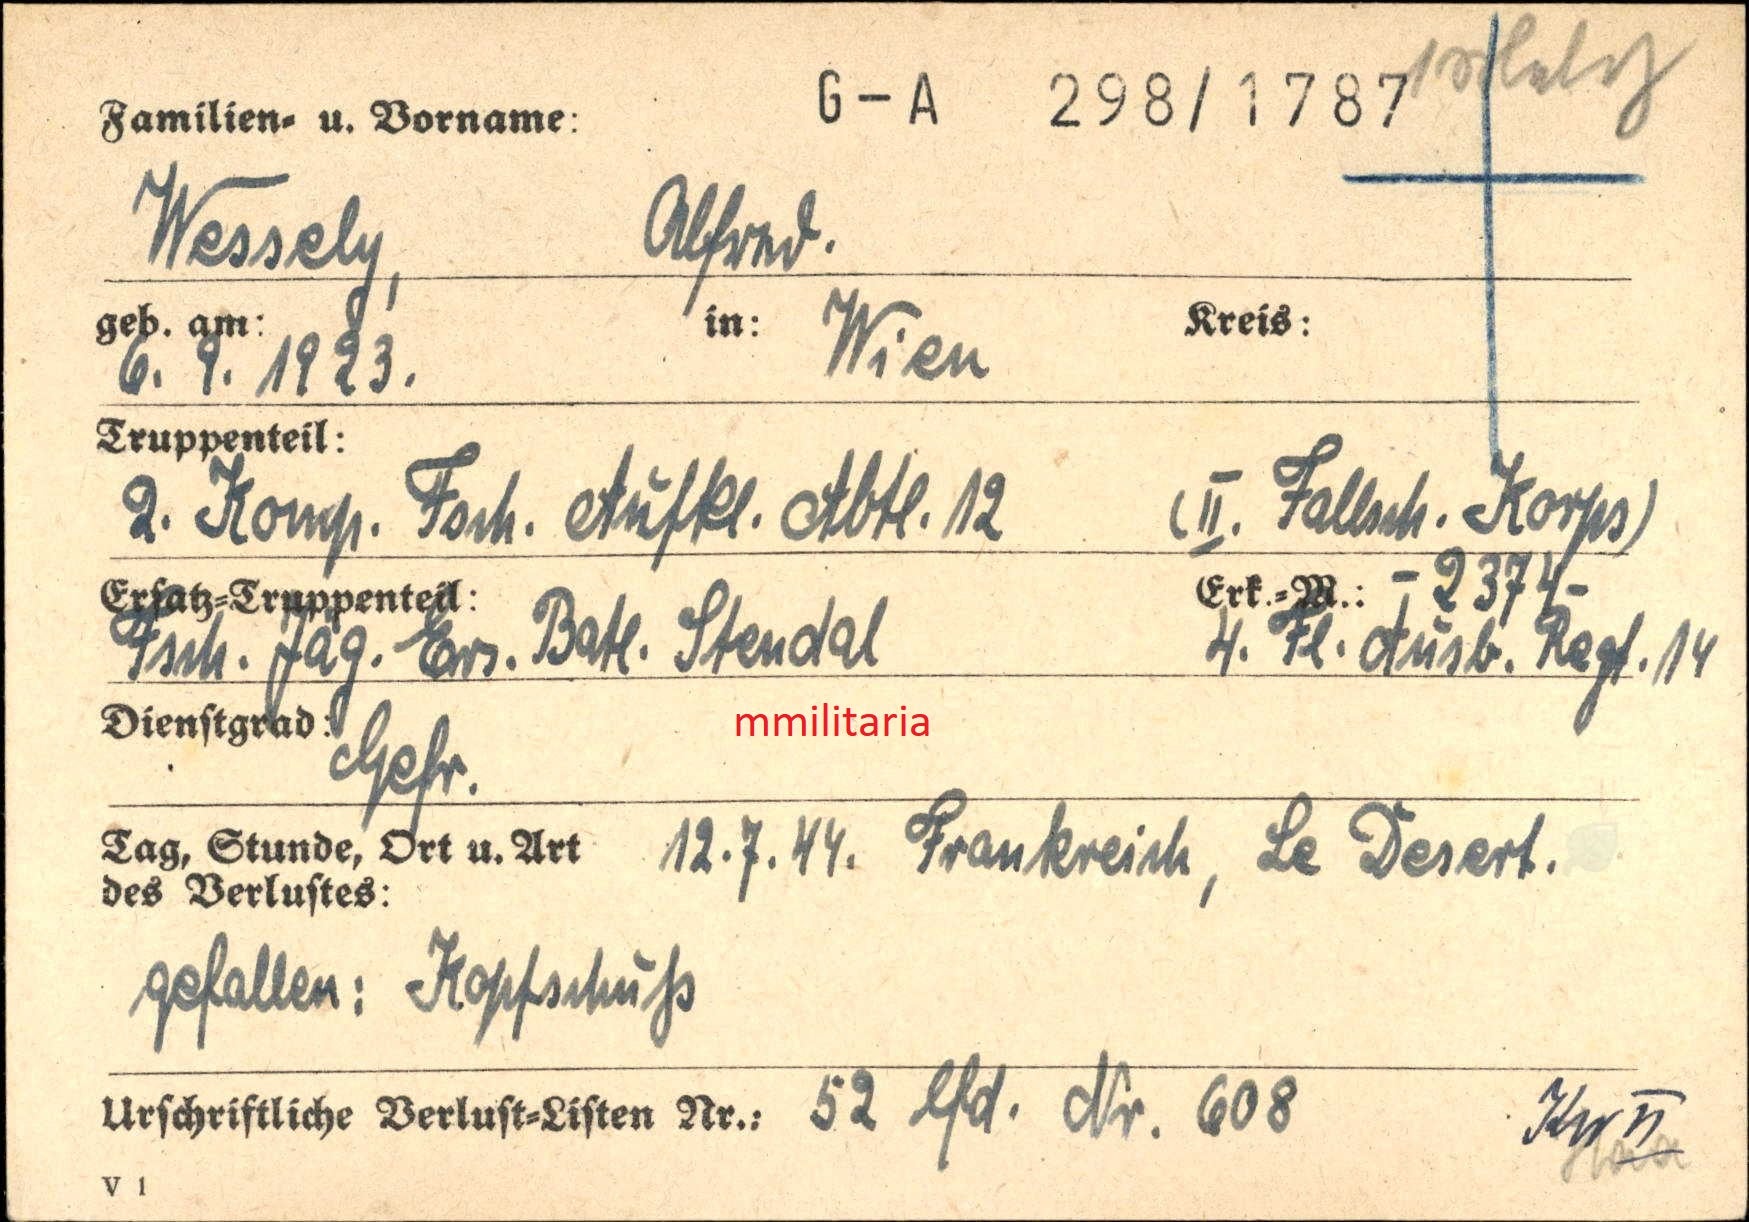 G-A 298/1787
Familien- u. Vorname:
Wessely, Alfred.
geb. am: in: Wien Kreis:
6. 9. 1923.
Truppenteil:
2. Komp. Fsch. Aufkl. Abtl. 12 (II. Fallsch. Korps)
Ersatz-Truppenteil: Erk.-M.: -2374-
Fsch. Jäg. Ers. Batl. Stendal 4. Fl. Ausb. Regt. 14
Dienstgrad: Gefr.
mmilitaria
Tag, Stunde, Ort u. Art 12.7.44. Frankreich, Le Desert.
des Verlustes:
gefallen: Kopfschuß
Urschriftliche Verlust-Listen Nr.: 52 lfd. Nr. 608
V 1